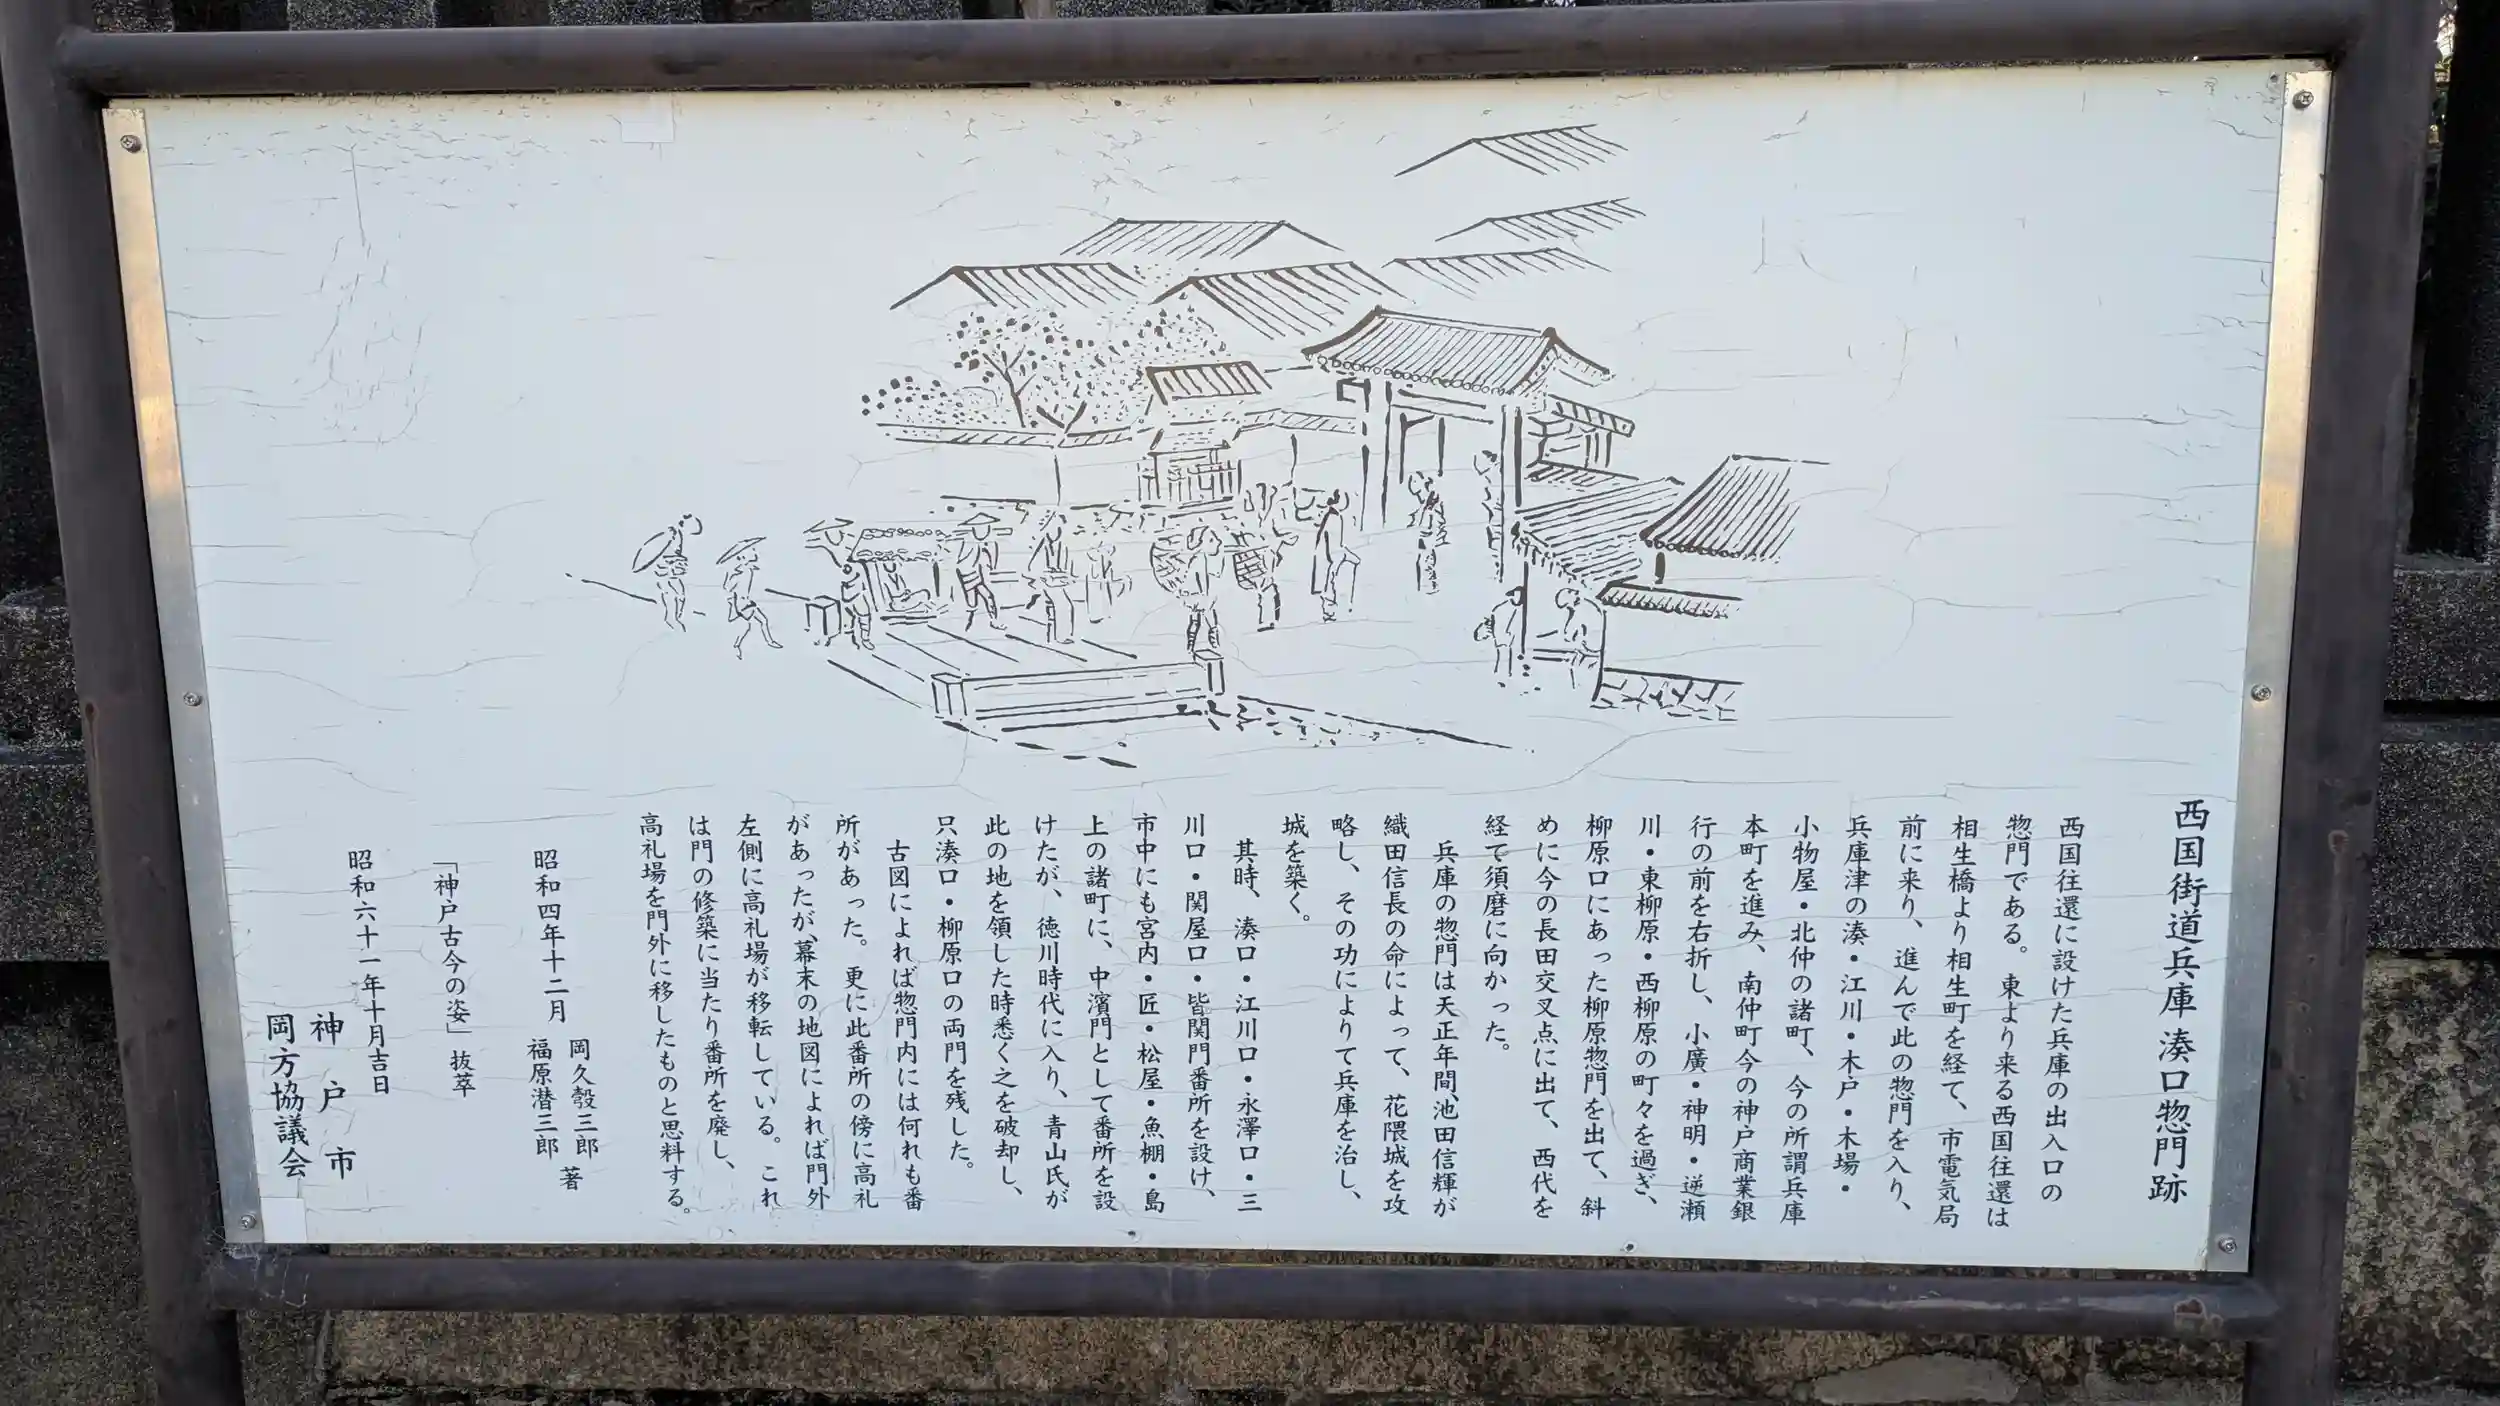 西国街道兵庫 湊口惣門跡
西国往還に設けた兵庫の出入口の
惣門である。東より来る西国往還は
相生橋より相生町を経て、市電気局
前に来り、進んで此の惣門を入り、
兵庫津の湊・江川・木戸・木場・
小物屋・北仲の諸町、今の所謂兵庫
本町を進み、南仲町今の神戸商業銀
行の前を右折し、小廣・神明・逆瀬
川・東柳原・西柳原の町々を過ぎ、
柳原口にあった柳原惣門を出て、斜
めに今の長田交叉点に出て、西代を
経て須磨に向かった。
兵庫の惣門は天正年間、池田信輝が
織田信長の命によって、花隈城を攻
略し、その功によりて兵庫を治し、
城を築く。
其時、湊口・江川口・永澤口・三
川口・関屋口・皆関門番所を設け、
市中にも宮内・匠・松屋・魚棚・島
上の諸町に、中濱門として番所を設
けたが、徳川時代に入り、青山氏が
此の地を領した時悉く之を破却し、
只湊口・柳原口の両門を残した。
古図によれば惣門内には何れも番
所があった。更に此番所の傍に高札
があったが、幕末の地図によれば門外
左側に高札場が移転している。これ
は門の修築に当たり番所を廃し、
高礼場を門外に移したものと思料する。
昭和四年十二月 岡久彀三郎
福原潜三郎 著
「神戸古今の姿」 抜萃
昭和六十一年十月吉日
神戸市
岡方協議会